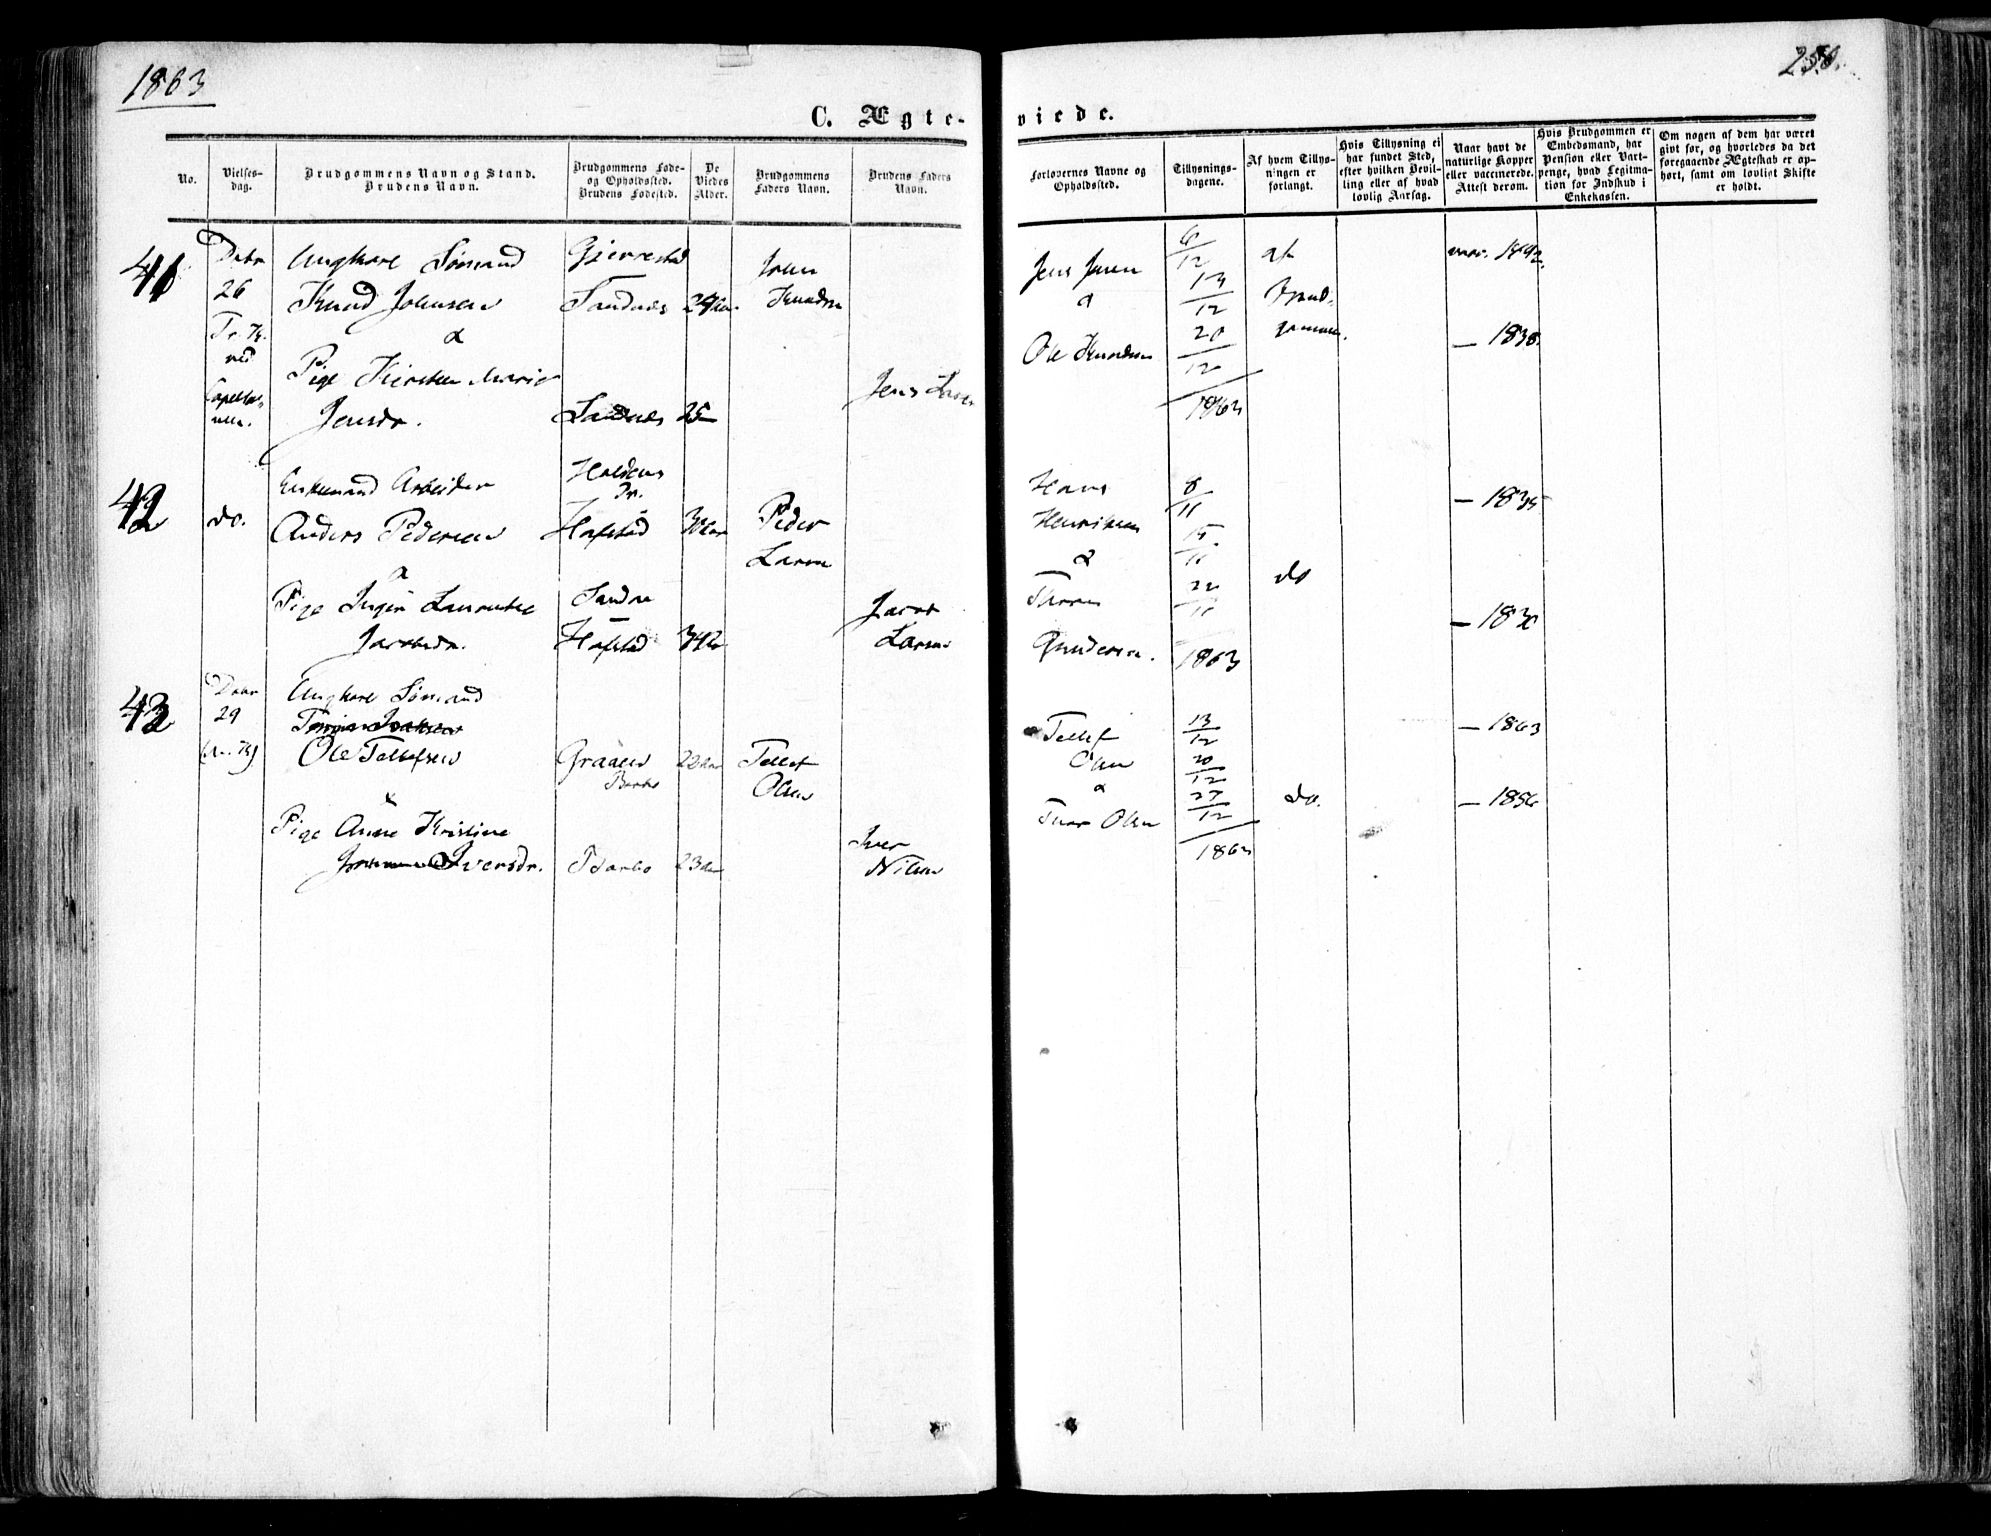 1863
258.
C. Ægte-
viede.
No.
Vielses-
dag.
Brudgommens Navn og Stand.
Brudens Navn.
Brudgommens Føde-
og Opholdssted.
Brudens Fødested.
De
Viedes
Alder.
Brudgommens
Faders Navn.
Brudens Faders
Navn.
Forlovernes Navne og
Opholdssted.
Tillysnings-
dagene.
Af hvem Tillys-
ningen er
forlangt.
Hvis Tillysning ei
har fundet Sted,
efter hvilken Bevil-
ling eller af hvad
lovlig Aarsag.
Naar havt de
naturlige Kopper
eller vaccinerede.
Attest derom.
Hvis Brudgommen er
Embedsmand, har
Pension eller Vart-
penge, hvad Legitima-
tion for Indskud i
Enkekassen.
Om nogen af dem har været
givt før, og hvorledes da det
foregaaende Ægteskab er op-
hørt, samt om lovligt Skifte
er holdt.
41
Decbr
26
Tr. K.
ved
Capella-
nen.
Ungkarl Sømand
Knud Johnsen
&
Pige Kirsten Marie
Jensdr.
Gjerrestad
Sandnes
Sandnes
25
John
Knudsen
Jens Larsen
Jens Jensen
&
Ole Knudsen
6/12
13/12
20/12
1863
af
Brud-
gommen.
vac. 1842.
— 1838.
42
do.
Enkemand Arbeider
Anders Pedersen
&
Pige Inger Laurentse
Jacobsdr.
Hafsted
Hafsted
Peder
Larsen
Jacob
Larsen
Hans
Henriksen
&
Gundersen.
8/11
15/11
22/11
1863
do
— 1835
— 1830
43
Decbr
29
Ungkarl Sømand
Ole Tellefsen
&
Pige Anne Kristine
Iversdr.
Barbo
Barbo
22 Aar
23 Aar
Tellef
Olsen
Iver
Nilsen
Tellef
Olsen
&
Thor Olsen
13/12
20/12
27/12
1863
do.
— 1863
— 1856